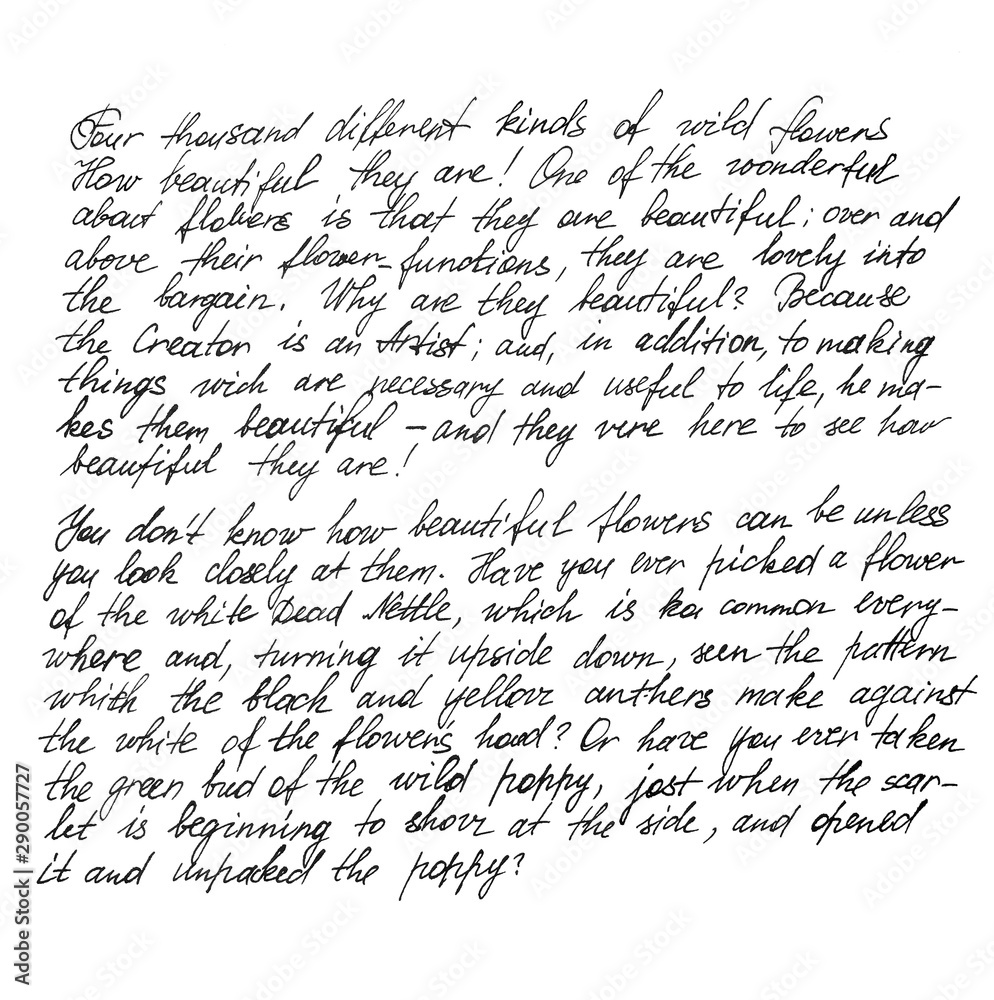 Four thousand different kinds of wild flowers
How beautiful they are! One of the wonderful
about flowers is that they are beautiful; over and
above their flower-functions, they are lovely into
the bargain. Why are they beautiful? Because
the Creator is an Artist; and, in addition, to making
things wich are necessary and useful to life, he ma-
kes them beautiful – and they vere here to see how
beautiful they are!
You don't know how beautiful flowers can be unless
you look closely at them. Have you ever picked a flower
of the white Dead Nettle, which is common every-
where and, turning it upside down, seen the pattern
whith the black and yellow anthers make against
the white of the flower's hood? Or have you ever taken
the green bud of the wild poppy, jost when the scar-
let is beginning to show at the side, and opened
it and unpacked the poppy?
Adobe Stock | #290057727